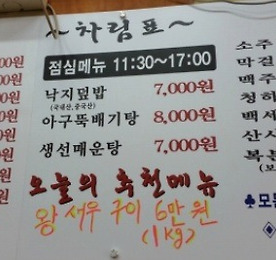 ~차림표~
점심메뉴 11:30~17:00
000원
낙지덮밥 7,000원
(국내산,중국산)
000원
아구뚝배기탕 8,000원
생선매운탕 7,000원
오늘의 추천메뉴
왕새우 구이 6만원
(1kg)
소주
막걸
맥주
청하
백세
산사
복분